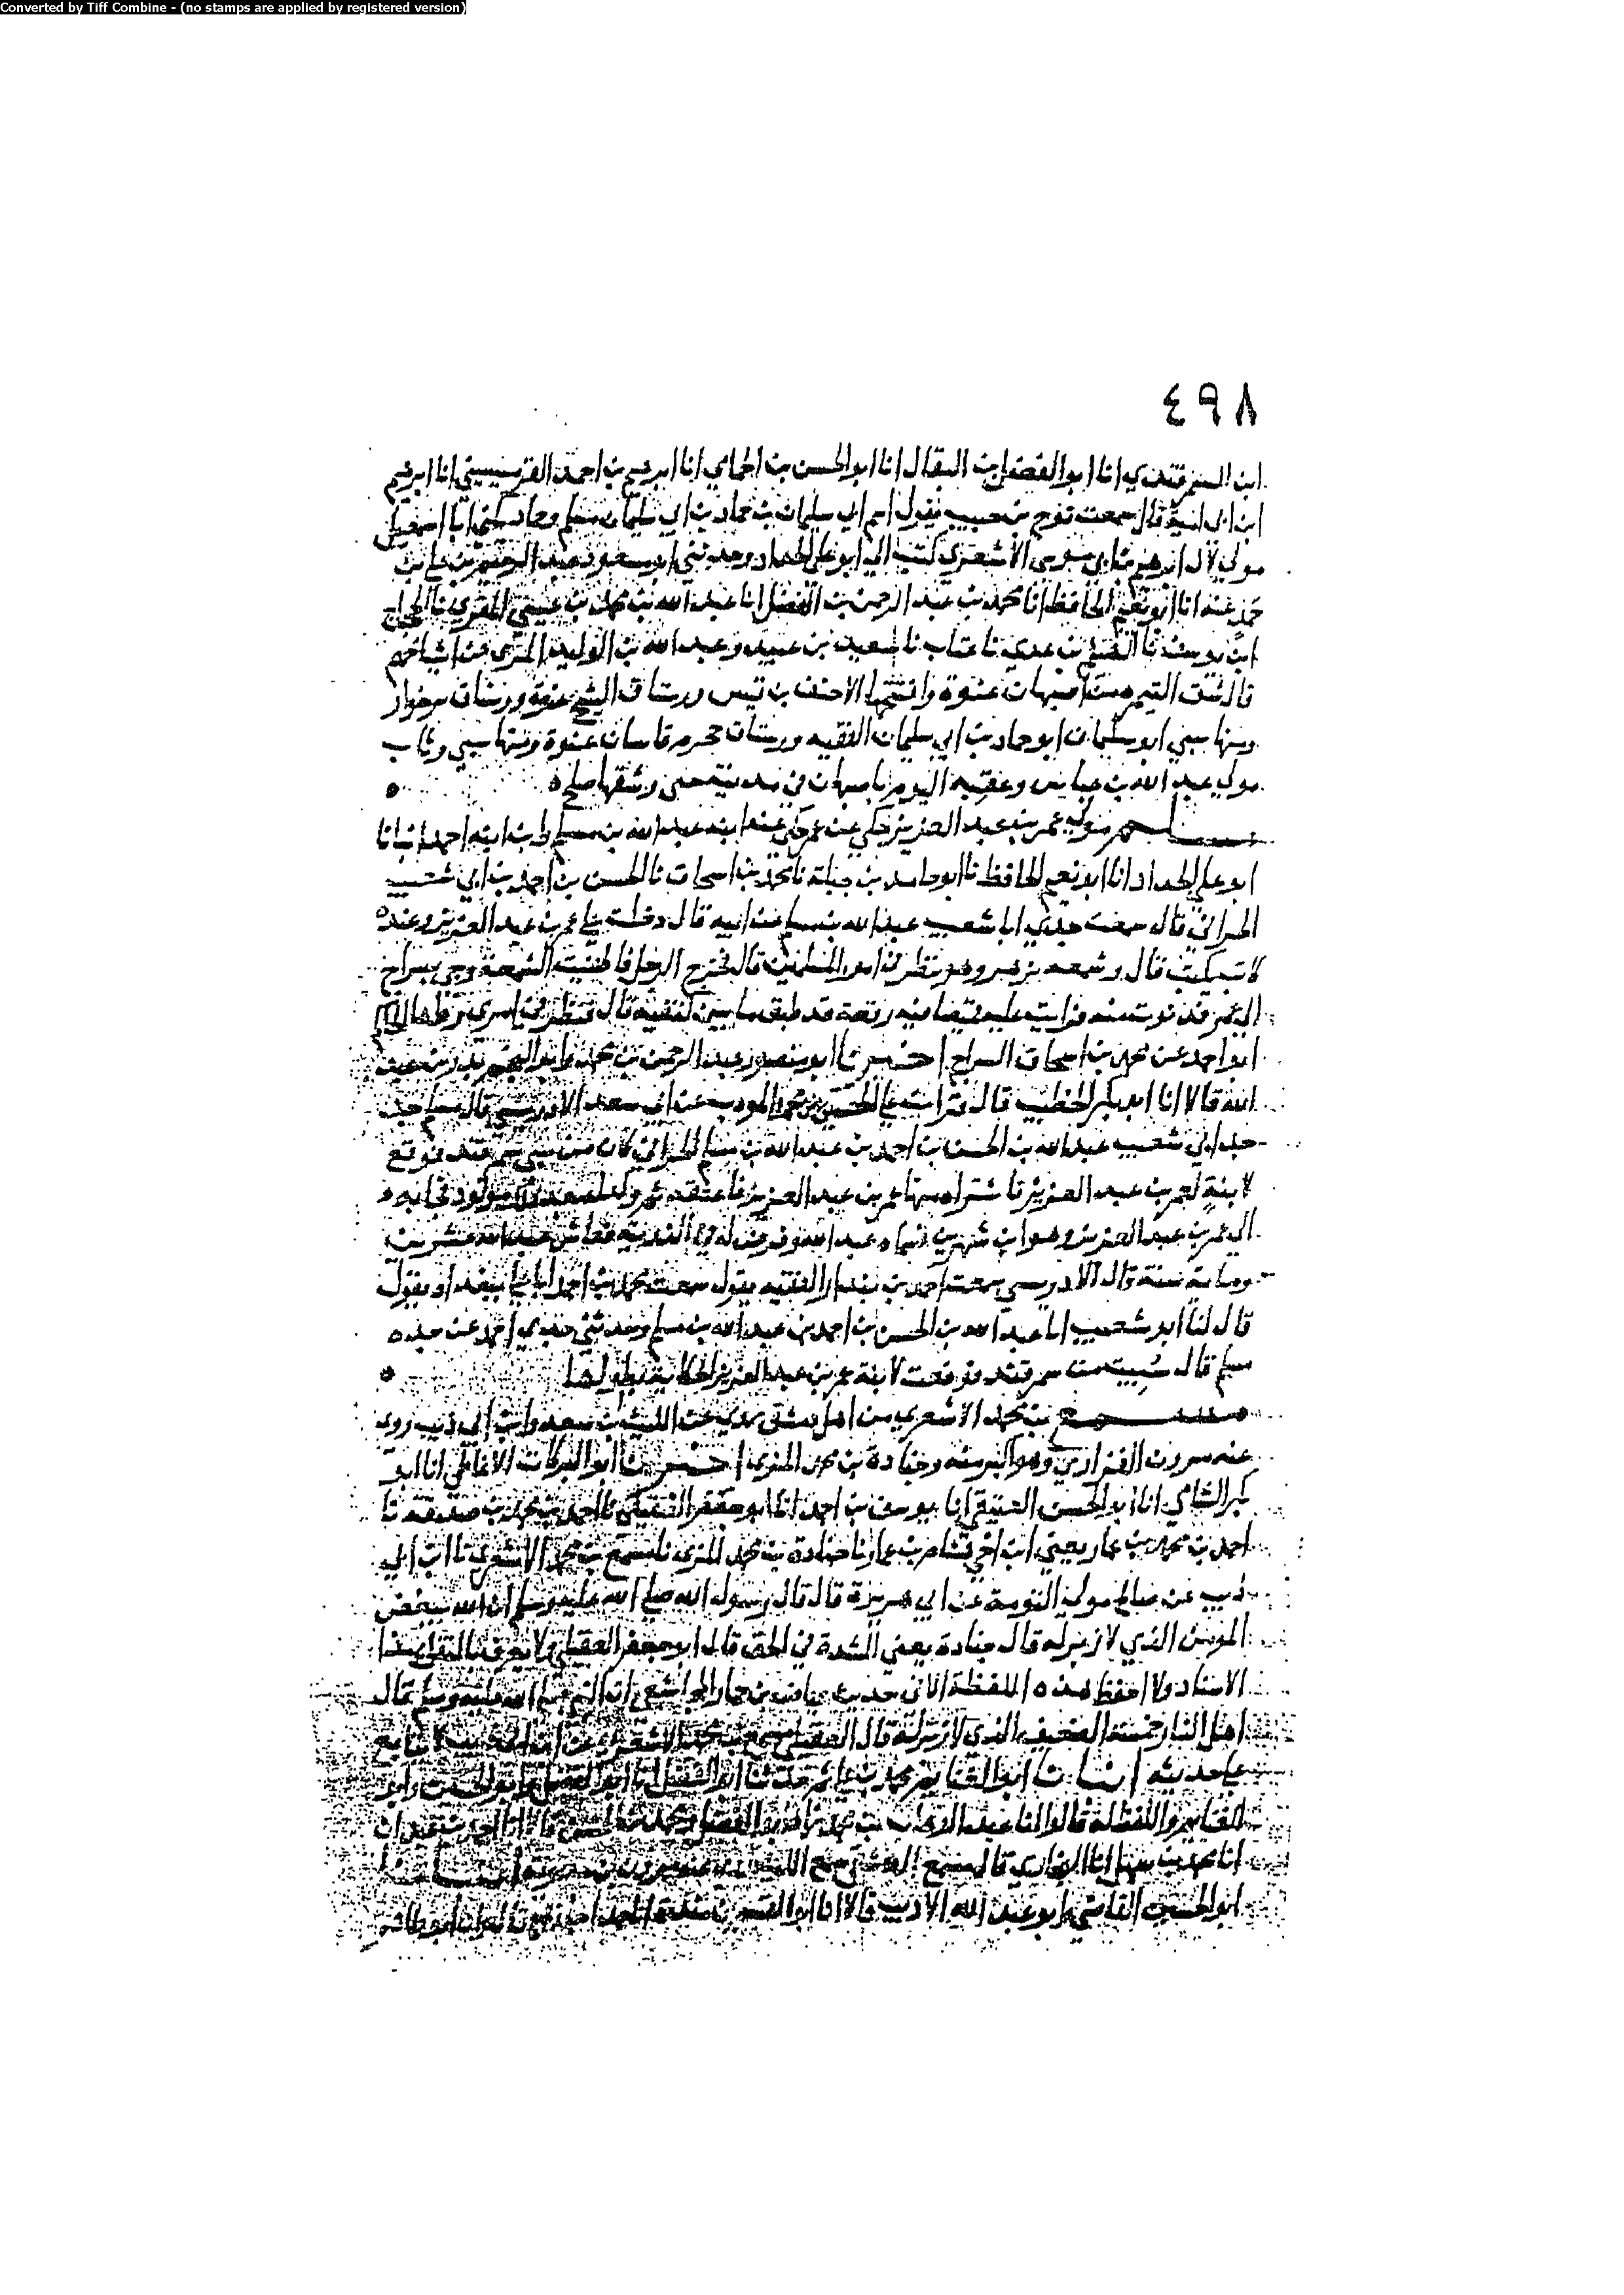 Converted by Tiff Combine - (no stamps are applied by registered version)
٤٩٨
ابن السمرقندي انا ابو الفضل بن البقال انا ابو الحسن بن الحمامي انا ابرهيم بن احمد القرميسيني انا ابرهيم
ابن ابي امية قال سمعت نوح بن حبيب يقول اسم ابي سليمان بن حماد بن ابي سليمان مسلم وحماد يكنى ابا اسمعيل
مولى لال ابرهيم بن ابي موسى الاشعري كتب الي ابو علي الحداد وحدثني ابو مسعود عبد الرحيم بن علي بن
حمد عنه انا ابو نعيم الحافظ انا محمد بن عبد الرحمن بن الفضل انا عبد الله بن محمد بن عيسى المقري نا الحجاج
ابن يوسف نا الفضل بن عدي نا عتاب نا سعيد بن عبيد وعبد الله بن الوليد المزي عن اشياخهم
قال شق التيمرة من اصبهان عنوة وافتتحها الاحنف بن قيس ورستاق الشيخ عنوة ورستاق برخوار
ومنها سبي ابو سليمان ابو حماد بن ابي سليمان الفقيه ورستاق جرم قاسان عنوة ومنها سبي وثاب
مولى عبد الله بن عباس وعقبه اليوم باصبهان في مدينة جي وشقها صلح ه
مسلم مولى عمر بن عبد العزيز حكى عن عمر حكى عنه ابنه عبد الله بن مسلم وابن ابنه احمد انبانا
ابو علي الحداد انا ابو نعيم الحافظ نا ابو حامد بن جبلة نا محمد بن اسحاق نا الحسن بن احمد بن ابي شعيب
الحراني قال سمعت جدي ابا شعيب عبد الله بن مسلم عن ابيه قال دخلت على عمر بن عبد العزيز وعنده
كاتب يكتب قال وشمعة تزهر وهو ينظر في امور المسلمين قال فخرج الرجل فاطفئت الشمعة وجيء بسراج
الى عمر فدنوت منه فرايت عليه قميصا فيه رقعة قد طبق ما بين كتفيه قال فنظر في امري
ابو احمد عن محمد بن اسحاق السراج اخبرنا ابو منصور عبد الرحمن بن محمد وابو النجم بدر بن عبد
الله قالا انا ابو بكر الخطيب قال قرات على الحسين بن محمد المودب عن ابي سعد الادريسي قال مسلم جد
جد ابي شعيب عبد الله بن الحسن بن احمد بن عبد الله بن مسلم الحراني كان من سبي سمرقند فوقع
لابنة لعمر بن عبد العزيز فاشتراه منها عمر بن عبد العزيز فاعتقه ثم ولد لمسلم مولود فجا به
الى عمر بن عبد العزيز وهو ابن شهرين فسماه عبد الله وفرض له في الذرية فعاش عبد الله عشرين
ومائة سنة قال الادريسي سمعت احمد بن بندار الفقيه يقول سمعت محمد بن احمد ببغداد يقول
قال لنا ابو شعيب انا عبد الله بن الحسن بن احمد بن عبد الله بن مسلم وحدثني جدي احمد عن جده
مسلم قال سبيت من سمرقند فوقعت لابنة عمر بن عبد العزيز الحكاية بطولها ه
مسمع بن محمد الاشعري من اهل دمشق روى عن الليث بن سعد وابن ابي ذيب روى
عنه مروان الفزاري وهو اكبر منه وجنادة بن محمد المزي اخبرنا ابو البركات الانماطي انا ابو
بكر الشامي انا ابو الحسن العتيقي انا يوسف بن احمد انا ابو جعفر العقيلي نا احمد بن محمد بن صدقة نا
احمد بن محمد بن عمار يعني ابن اخي هشام بن عمار نا جنادة بن محمد المزي نا مسمع بن محمد الاشعري نا ابن ابي
ذيب عن صالح مولى التومة عن ابي هريرة قال قال رسول الله صلى الله عليه وسلم ان الله يبغض
المومن الذي لا زبر له قال جنادة يعني الشدة في الحق قال ابو جعفر العقيلي لا يعرف بهذا
الاسناد ولا احفظ هذه اللفظة الا في حديث عياض بن حمار المجاشعي ان النبي صلى الله عليه وسلم قال
اهل النار خمسة الضعيف الذي لا زبر له قال العقيلي مسمع بن محمد الاشعري عن ابن ابي ذيب لا يتابع
على حديثه انبانا ابو الغنايم محمد بن علي ثم حدثنا ابو الفضل انا ابو الفضل وابو الحسين وابو
الغنايم واللفظ له قالوا انا عبد الوهاب بن محمد زاد ابو الفضل ومحمد بن الحسن قالا انا احمد بن عبدان
انا محمد بن سهل انا البخاري قال مسمع الدمشقي سمع الليث
ابو الحسين القاضي وابو عبد الله الاديب قالا انا ابو القسم بن مندة انا حمد